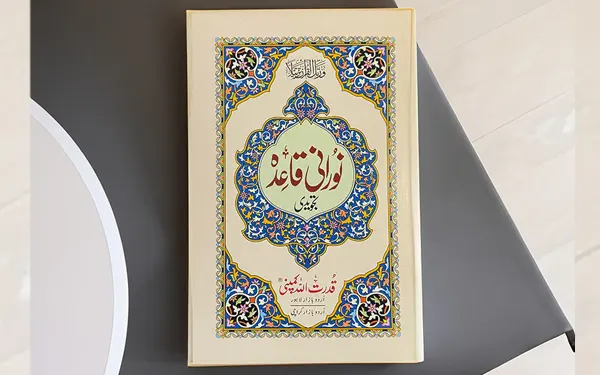 ورتل القرآن ترتیلا
نورانی قاعدہ
تجویدی
قدرت اللہ کمپنی
اردو بازار لاہور
اردو بازار کراچی